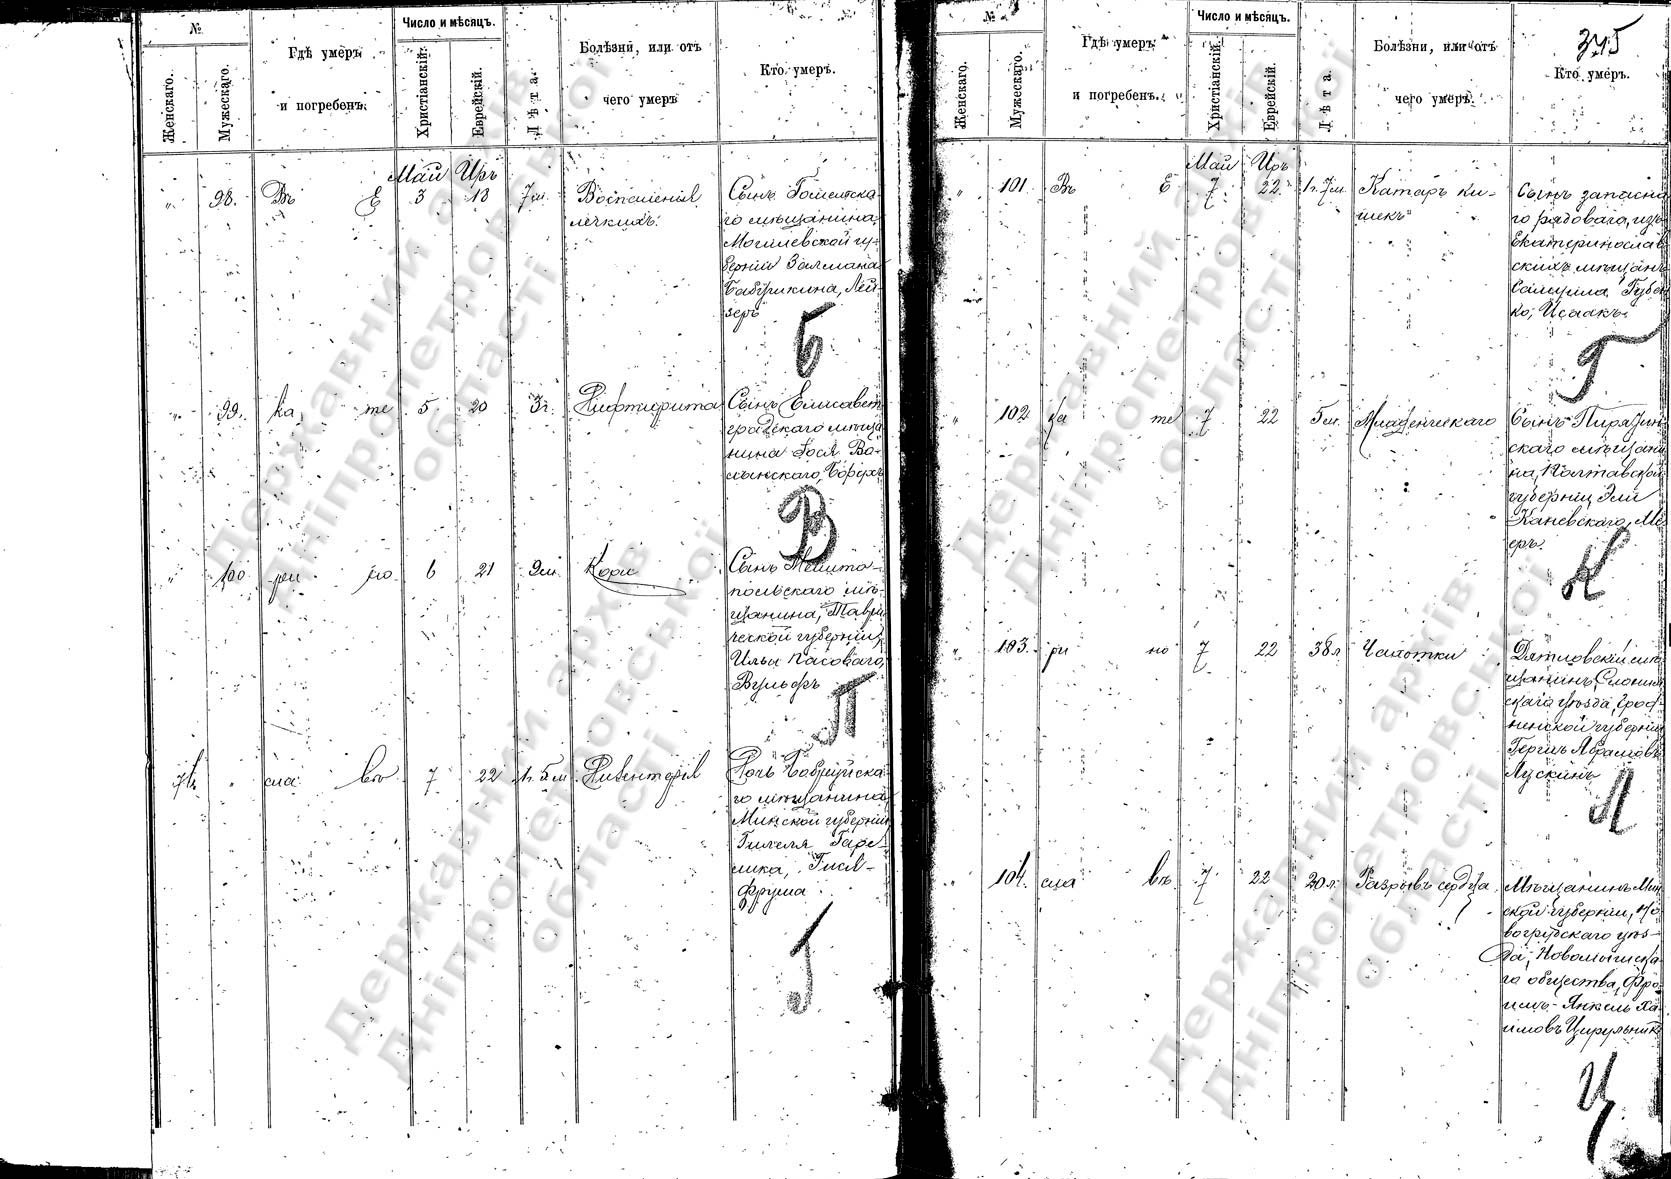 №
Женскаго.
Мужескаго.
Гдѣ умеръ
и погребенъ.
Число и мѣсяцъ.
Христіанскій.
Еврейскій.
Лѣта.
Болѣзни, или отъ
чего умеръ
Кто умеръ.
Май Иръ
" 98. Въ Е 3 13 7 м. Воспаленія
легкихъ.
Сынъ Гомельска-
го мѣщанина,
Могилевской гу-
берніи Залмана
Бабушкина, Лей-
зеръ
Б
" 99. ка те 5 20 3 г. Дифтерита
Сынъ Елисавет
градскаго мѣща
нина Іося Во-
лынскаго,
В
" 100 ри но 6 21 9 м Кори
Сынъ Мелито-
польскаго мѣ-
щанина, Таври
ческой губерніи,
Ильи Пасоваго,
Вульфъ
П
71. " сла вѣ 7 22 1 г. 5 м Дизентерія
Дочь Бобруйска-
го мѣщанина
Минской губерніи
Гилеля Горе-
лика, Гися-
Фрума
Г
№
Женскаго.
Мужескаго.
Гдѣ умеръ
и погребенъ.
Число и мѣсяцъ.
Христіанскій.
Еврейскій.
Лѣта.
Болѣзни, или отъ
чего умеръ.
345
Кто умеръ.
Май Иръ
" 101. Въ Е 7 22. 1 г. 7 м. Катаръ ки-
шекъ
Сынъ запасна
го рядоваго, изъ
Екатеринослав
скихъ мѣщанъ
Самуила Губен
ко, Исаакъ.
Г
" 102 ка те 7 22 5 м. Младенческаго
Сынъ Пирятин
скаго мѣщани
на, Полтавской
губерніи Эли
Каневскаго, Ме
еръ.
К
" 103. ри но 7 22 38 л Чахотки
Дятловскій мѣ
щанинъ, Слоним
скаго уѣзда, Грод-
ненской губерніи
Абрамовъ
Лускинъ
Л
" 104. сла вѣ 7 22 20 л. Разрывъ сердца
Мѣщанинъ Мин
ской губерніи, Но
вогрудскаго уѣз-
да, Новомышска
го общества, Фро
имъ-Янкель Ха-
имовъ Цирульникъ
Ц
Державний архів
Дніпропетровської
області
Державний архів
Дніпропетровської
області
Державний архів
Дніпропетровської
області
Державний архів
Дніпропетровської
області